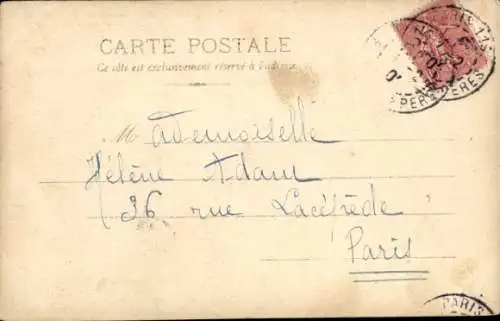 CARTE POSTALE
Ce côté est exclusivement réservé à l'adresse
Mademoiselle
Hélène Adam
36 rue Lacépède
Paris
PARIS